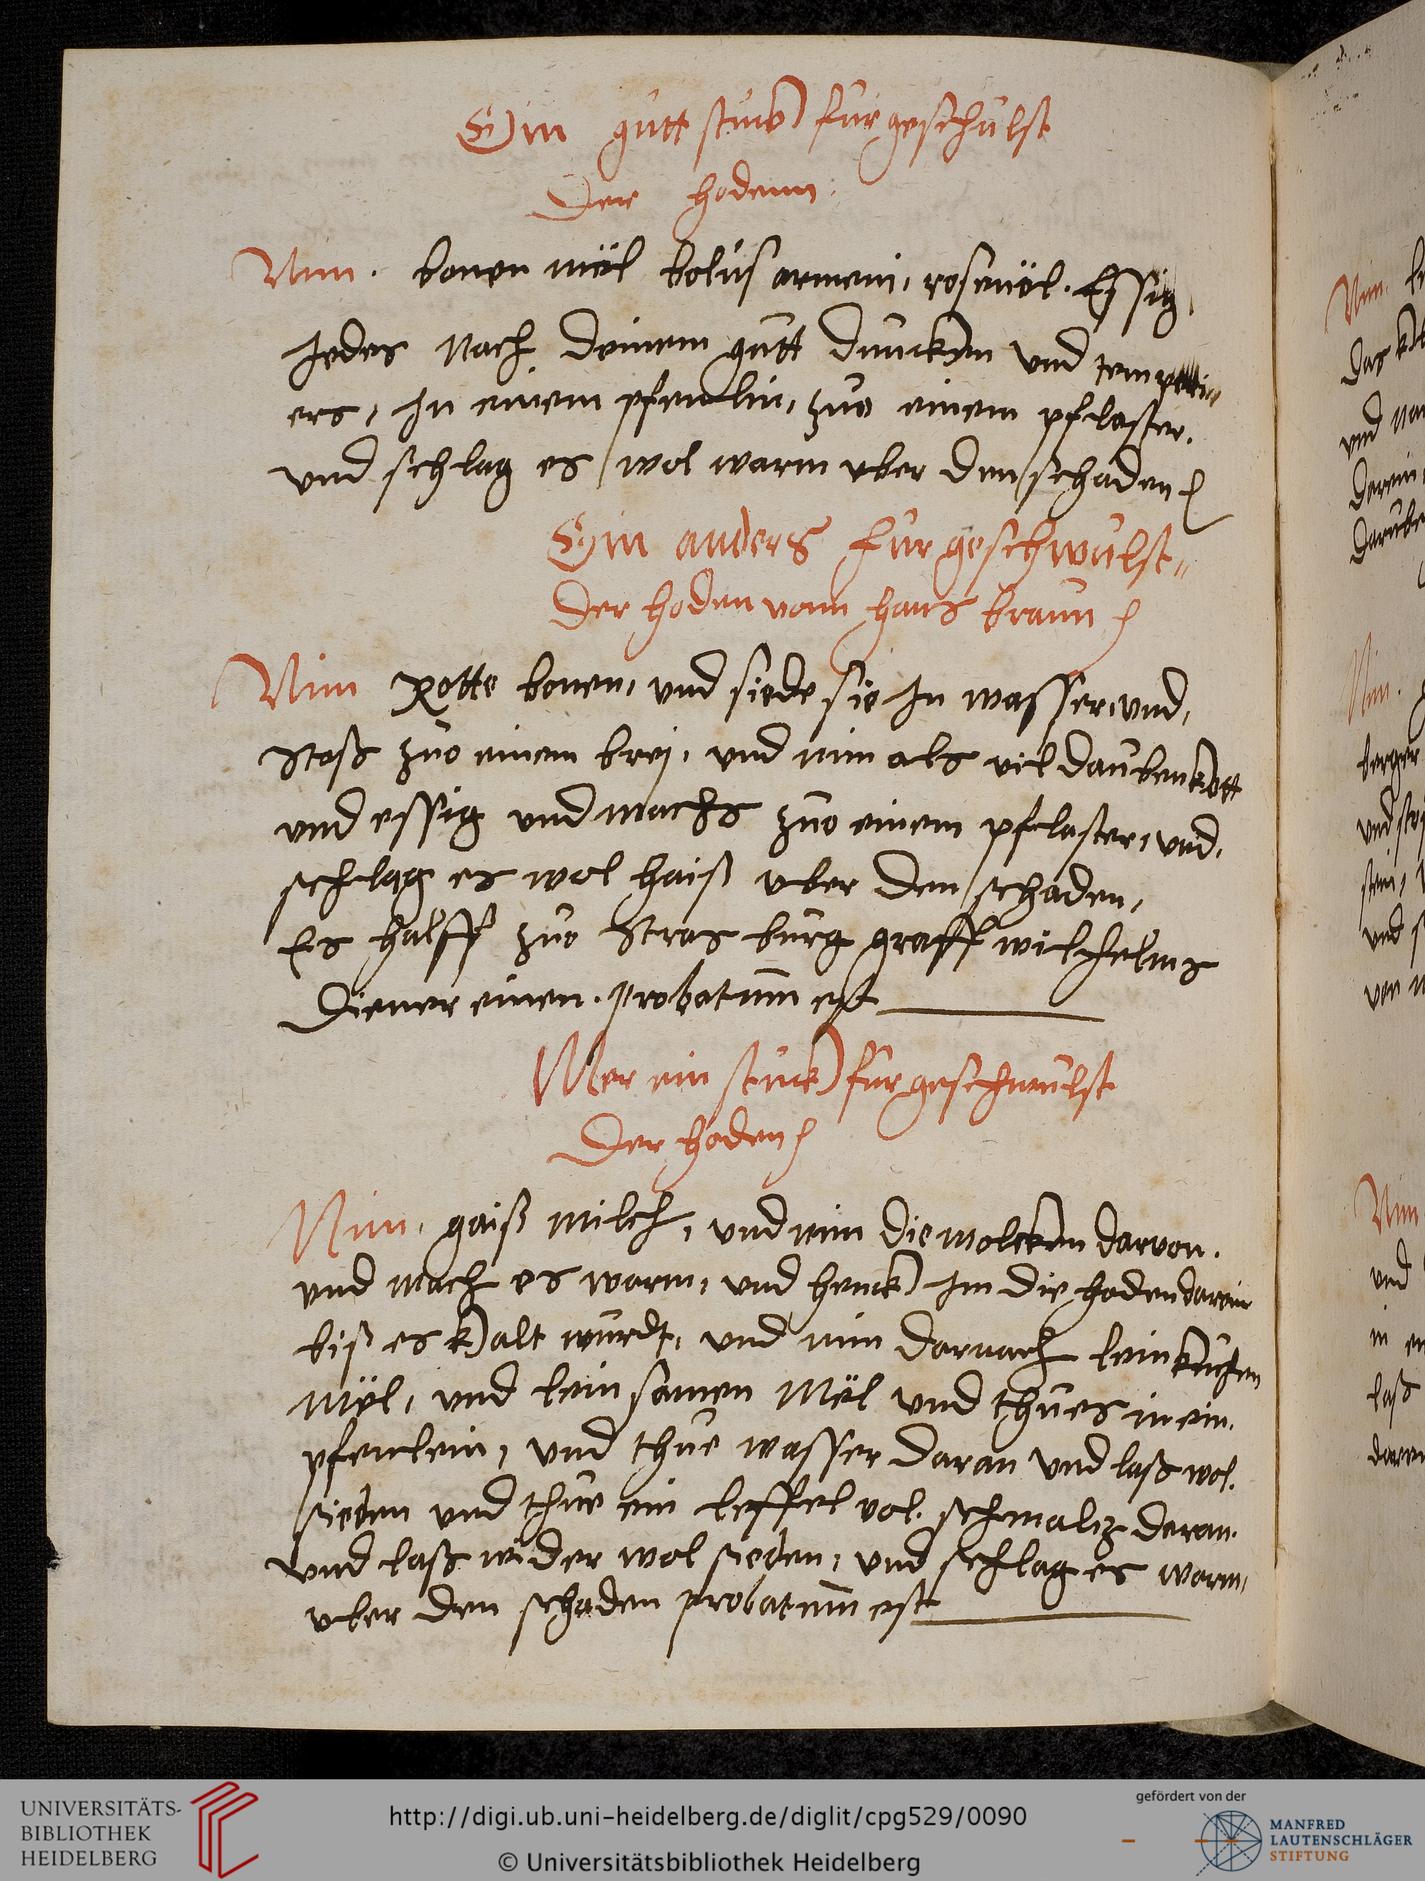 Ein gutt stuck fur geschulst
der hodenn.
Nim. bonen mël bolus armeni, rosenöl. Essig,
Jedes Nach deinem gutt duncken und temperi„
ers, In einem pfenlin, zuo einem pflaster.
und schlag es wol warm uber den schaden
Ein anders fur geschwulst„
der hoden vonn hans braun
Nim Rotte bonen, und siede sie In wasser, und,
Stoß zuo einem brej, und nim als vil daubenkott
und essig und machs zuo einem pflaster, und,
schlag es wol haiß uber den schaden,
Es halff zuo Stras burg graff wilhelms
diener einen. probatum est
Mer ein stuck fur geschwulst
der hoden
Nim. gaiß milch, und nim die molcken darvon.
und mach es warm, und henck Im die hoden darein
biß es kalt wurdt, und nim darnach leinkuchen
Mël, und lein samen Mël und thues in ein.
pfenlein, und thue wasser daran und laß wol.
sieden und thue ein leffel vol. schmaltz daran.
und laß wider wol sieden, und schlag es warm,
uber den schaden probatum est
UNIVERSITÄTS-
BIBLIOTHEK
HEIDELBERG
http://digi.ub.uni-heidelberg.de/diglit/cpg529/0090
© Universitätsbibliothek Heidelberg
gefördert von der
MANFRED
LAUTENSCHLÄGER
STIFTUNG